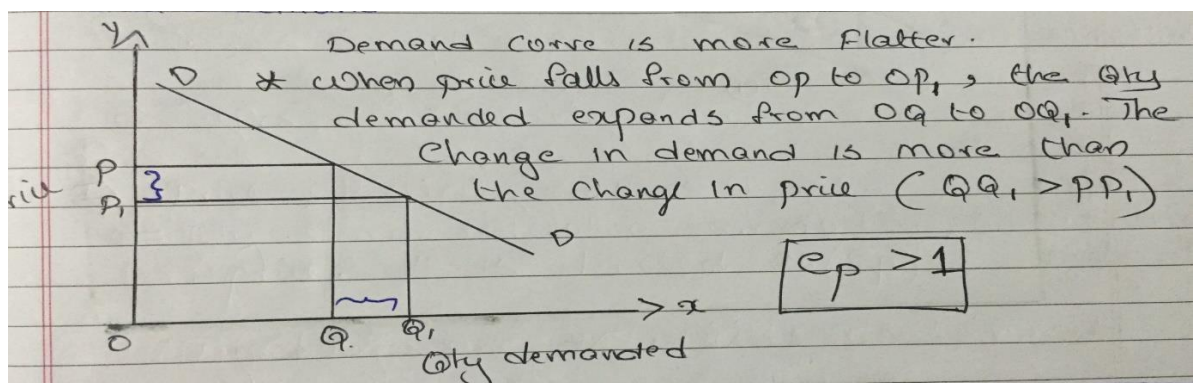 Demand Corve is more Flatter.
* When price falls from OP to OP₁, the Qty
demanded expands from OQ to OQ₁. The
Change in demand is more than
the change in price (QQ₁ > PP₁)
ep >1
y
D
P
P₁
D
O
Q.
Q₁
x
Qty demanded